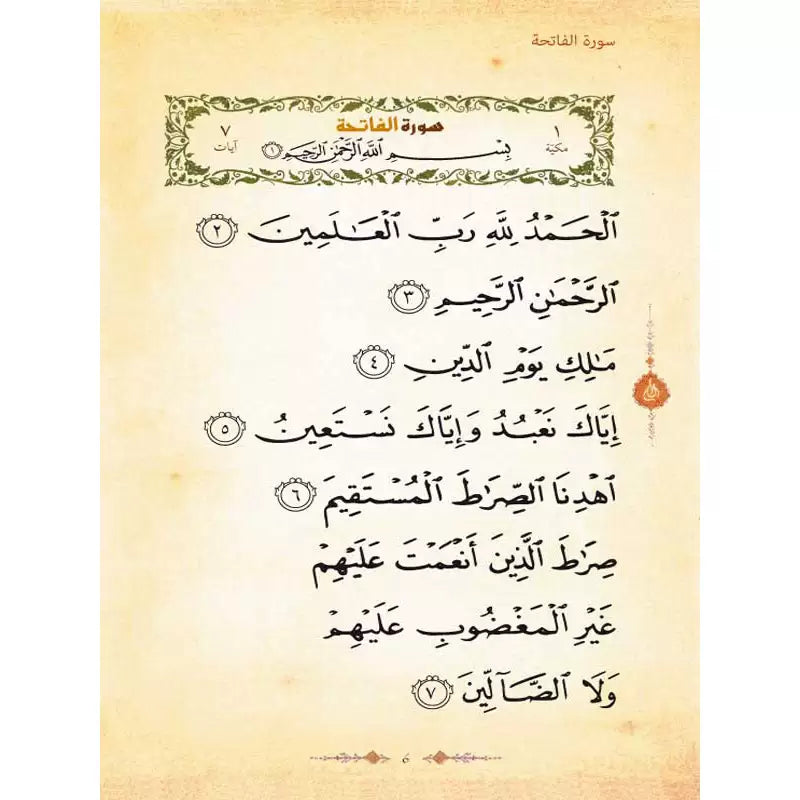 سورة الفاتحة
سورة الفاتحة
١ مكية
٧ آيات
بِسْمِ ٱللَّهِ ٱلرَّحْمَٰنِ ٱلرَّحِيمِ ١
ٱلْحَمْدُ لِلَّهِ رَبِّ ٱلْعَٰلَمِينَ ٢
ٱلرَّحْمَٰنِ ٱلرَّحِيمِ ٣
مَٰلِكِ يَوْمِ ٱلدِّينِ ٤
إِيَّاكَ نَعْبُدُ وَإِيَّاكَ نَسْتَعِينُ ٥
ٱهْدِنَا ٱلصِّرَٰطَ ٱلْمُسْتَقِيمَ ٦
صِرَٰطَ ٱلَّذِينَ أَنْعَمْتَ عَلَيْهِمْ
غَيْرِ ٱلْمَغْضُوبِ عَلَيْهِمْ
وَلَا ٱلضَّآلِّينَ ٧
6